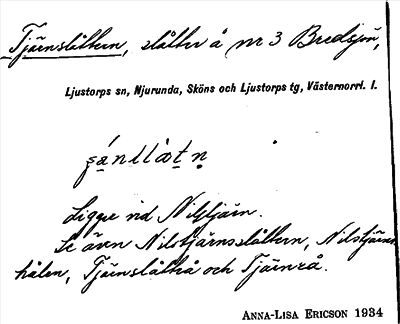 Tjärnslåttern, slåtter å nr 3 Bredsjön,
Ljustorps sn, Njurunda, Sköns och Ljustorps tg, Västernorrl. l.
Ligger vid Nilstjärn.
Se även Nilstjärnsslåttern, Nilstjärns-
hålen, Tjärnslåttå och Tjärnrå.
ANNA-LISA ERICSON 1934